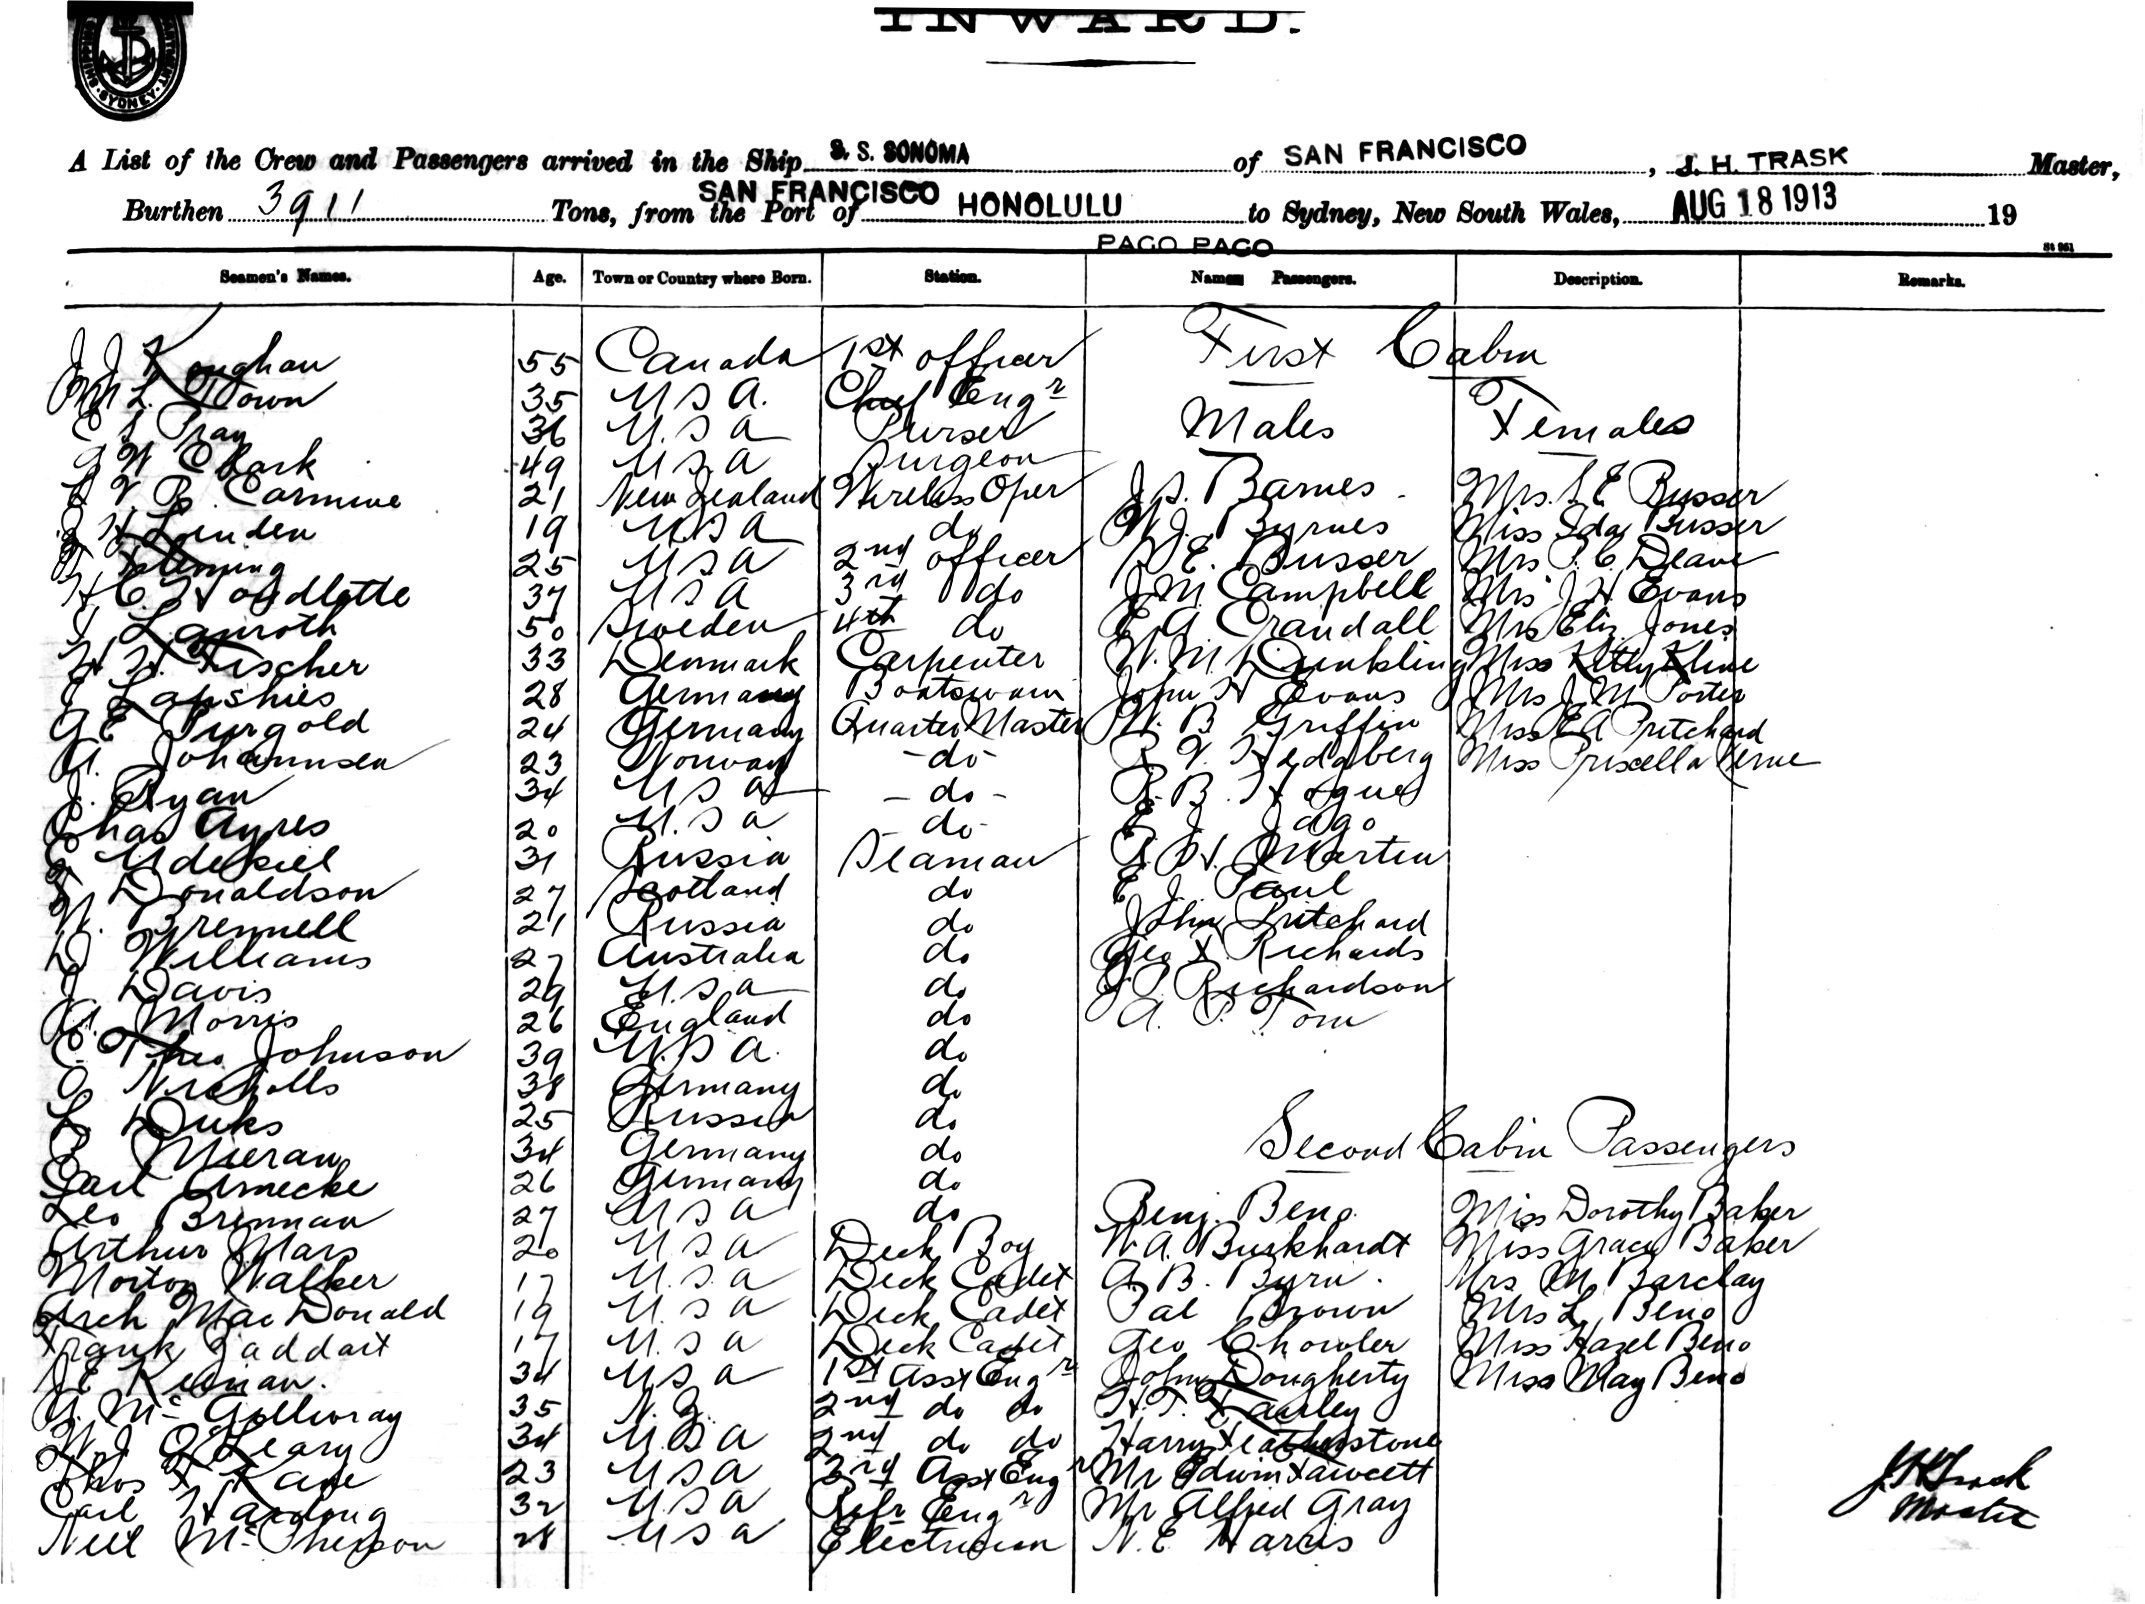 INWARD.
SYDNEY
A List of the Crew and Passengers arrived in the Ship S. S. SONOMA of SAN FRANCISCO, J. H. TRASK Master,
Burthen 3911 Tons, from the Port of SAN FRANCISCO HONOLULU to Sydney, New South Wales, AUG 18 1913 19
PAGO PAGO
St 961
Seamen's Names. Age. Town or Country where Born. Station. Names Passengers. Description. Remarks.
First Cabin
J J Koughan 55 Canada 1st officer
M L Town 35 U S A. Chief Engr Males Females
C S Pray 36 U.S A Purser
G W Clark 49 U S A Surgeon
L V R Carmine 21 New Zealand Wireless Oper J. S. Barnes Mrs. S E Busser
J H Linden 19 U S A do W J. Byrnes Miss Ida Busser
Fleming 25 U S A 2nd officer S E. Busser Mrs P. C. Deane
H C. Hoodlatte 37 U S A 3rd do J. M. Campbell Mrs J H Evans
Lanroth 50 Sweden 4th do E A Crandall Mrs Eliz Jones
H. H. Fischer 33 Denmark Carpenter W. M. Dunkling Miss Kitty Kline
J Lapshies 28 Germany Boatswain John H Evans Mrs J. M Porter
G E Purgold 24 Germany Quarter Master W. B Griffin Miss E A Pritchard
A. Johannsen 23 Norway - do - R. V. Hedgberg Miss Priscella Verne
J. Ryan 34 U S A - do - R. B. Hogue
Chas Ayres 20 U.S A - do - E J Jago
Udekiel 31 Russia Seaman A. H. Martin
Donaldson 27 Scotland do E J. Paul
W. Brennell 21 Russia do John Pritchard
D Williams 27 Australia do Geo X Richards
J Davis 29 U.S.A do Richardson
A. Morris 26 England do A. P. Tom
C. Theo Johnson 39 U.S A. do
O Nicholls 38 Germany do
L. Duks 25 Russia do
Mieran 34 Germany do Second Cabin Passengers
Carl Arnecke 26 Germany do
Leo Brennan 27 U S A do Benj. Beno. Miss Dorothy Baker
Arthur Mars 20 U S A Deck Boy W A. Burkhardt Miss Grace Baker
Morton Walker 17 U.S.A Deck Cadet A B. Byrn. Mrs M Barclay
Arch Mac Donald 19 U.S A Deck Cadet Pat Brown Mrs L Beno
Frank Gaddart 17 U.S A Deck Cadet Geo Chowler Miss Hazel Beno
J E Keenan. 34 U S A 1st Asst Engr John Dougherty Miss May Beno
A. Mc Gollivray 35 N. Z. 2nd do do H. T. Faarley
W. J O'Leary 34 U.S A 2nd do do Harry Featherstone
Thos F Kane 23 U S A 3rd Asst Engr Mr Edwin Fawcett
Carl Harding 32 U S A Refr Engr Mr Alfred Gray
Neil McPherson 28 U S A Electrician N. E Harris
J H Trask
Master